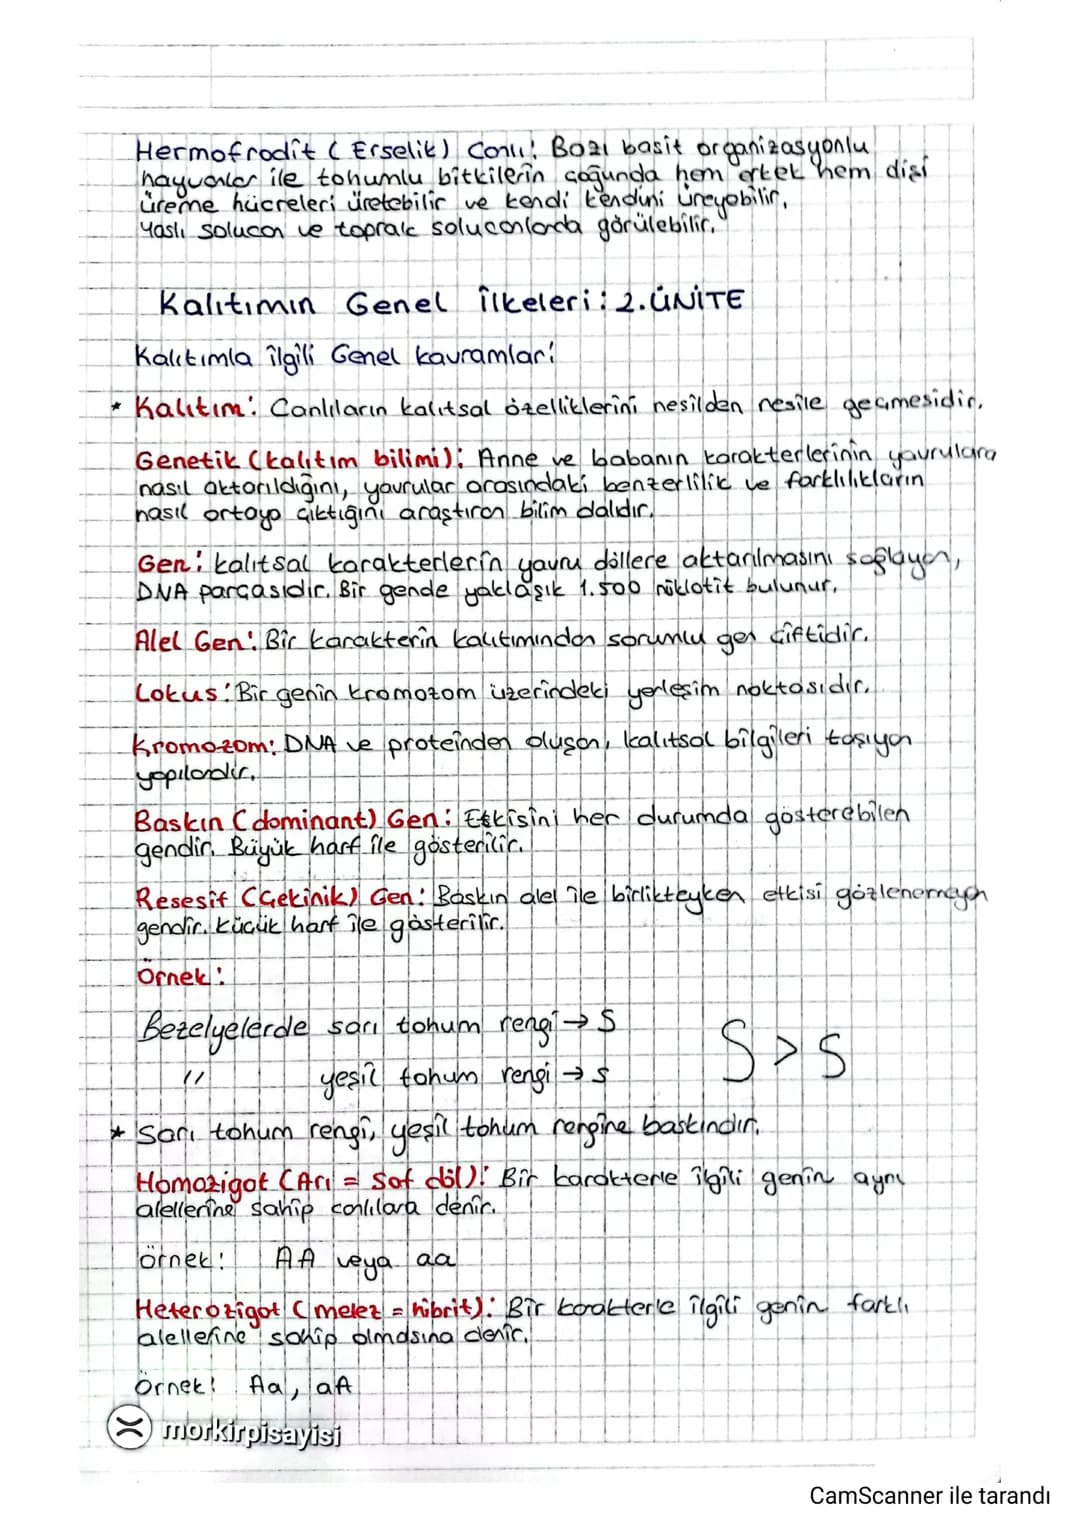 Hermofrodit (Erselik) Canlı: Bazı basit organizasyonlu
hayvanlar ile tohumlu bitkilerin çoğunda hem erkek hem dişi
üreme hücreleri üretebilir ve kendi kendini üreyebilir,
Yaslı solucan ve toprak solucanlarda görülebilir.
Kalıtımın Genel İlkeleri: 2.ÜNİTE
Kalıtımla ilgili Genel kavramlar:
* Kalıtım: Canlıların kalıtsal özelliklerini nesilden nesile geçmesidir.
Genetik (kalıtım bilimi): Anne ve babanın karakterlerinin yavrulara
nasıl aktarıldığını, yavrular arasındaki benzerlilik ve farklılıkların
nasıl ortaya çıktığını araştıran bilim dalıdır.
Gen: kalıtsal karakterlerin yavru döllere aktarılmasını sağlayan,
DNA parçasıdır. Bir gende yaklaşık 1.500 nüklotit bulunur.
Alel Gen: Bir karakterin kalıtımından sorumlu gen çiftidir.
Lokus: Bir genin kromozom üzerindeki yerleşim noktasıdır.
Kromozom: DNA ve proteinden oluşan, kalıtsal bilgileri taşıyan
yapılardır.
Baskın (dominant) Gen: Etkisini her durumda gösterebilen
gendir. Büyük harf ile gösterilir.
Resesif (Çekinik) Gen: Baskın alel ile birlikteyken etkisi gözlenemeyen
gendir. küçük harf ile gösterilir.
Örnek:
Bezelyelerde sarı tohum rengi → S
S > s
" yeşil tohum rengi → s
* Sarı tohum rengi, yeşil tohum rengine baskındır.
Homozigot (Arı = Saf döl): Bir karakterle ilgili genin aynı
alellerine sahip canlılara denir.
örnek: AA veya aa
Heterozigot (melez = hibrit): Bir karakterle ilgili genin farklı
alellerine sahip olmasına denir.
Örnek: Aa, aA
morkirpisayisi
CamScanner ile tarandı